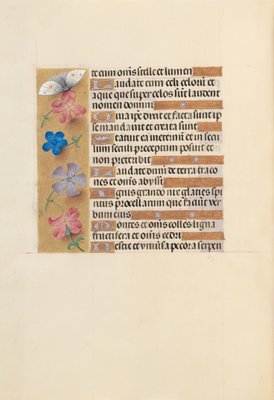 te eum om̅s stelle et lumen
Laudate eum celi celorū et
aque que super celos sūt laudent
nomen domini
Quia ip̄e dixit et facta sunt ip
se mandauit et creata sunt
Statuit ea ineternū et in secu
lum seculi preceptum posuit et
non preteribit
Laudate dn̄m de terra draco
nes et om̅s abyssi
Ignis grando nix glaties spi
ritus procellarum que faciūt ver
bum eius
Montes et om̅s colles ligna
fructifera et om̅s cedri
Bestie et vniūsa pecora serpen